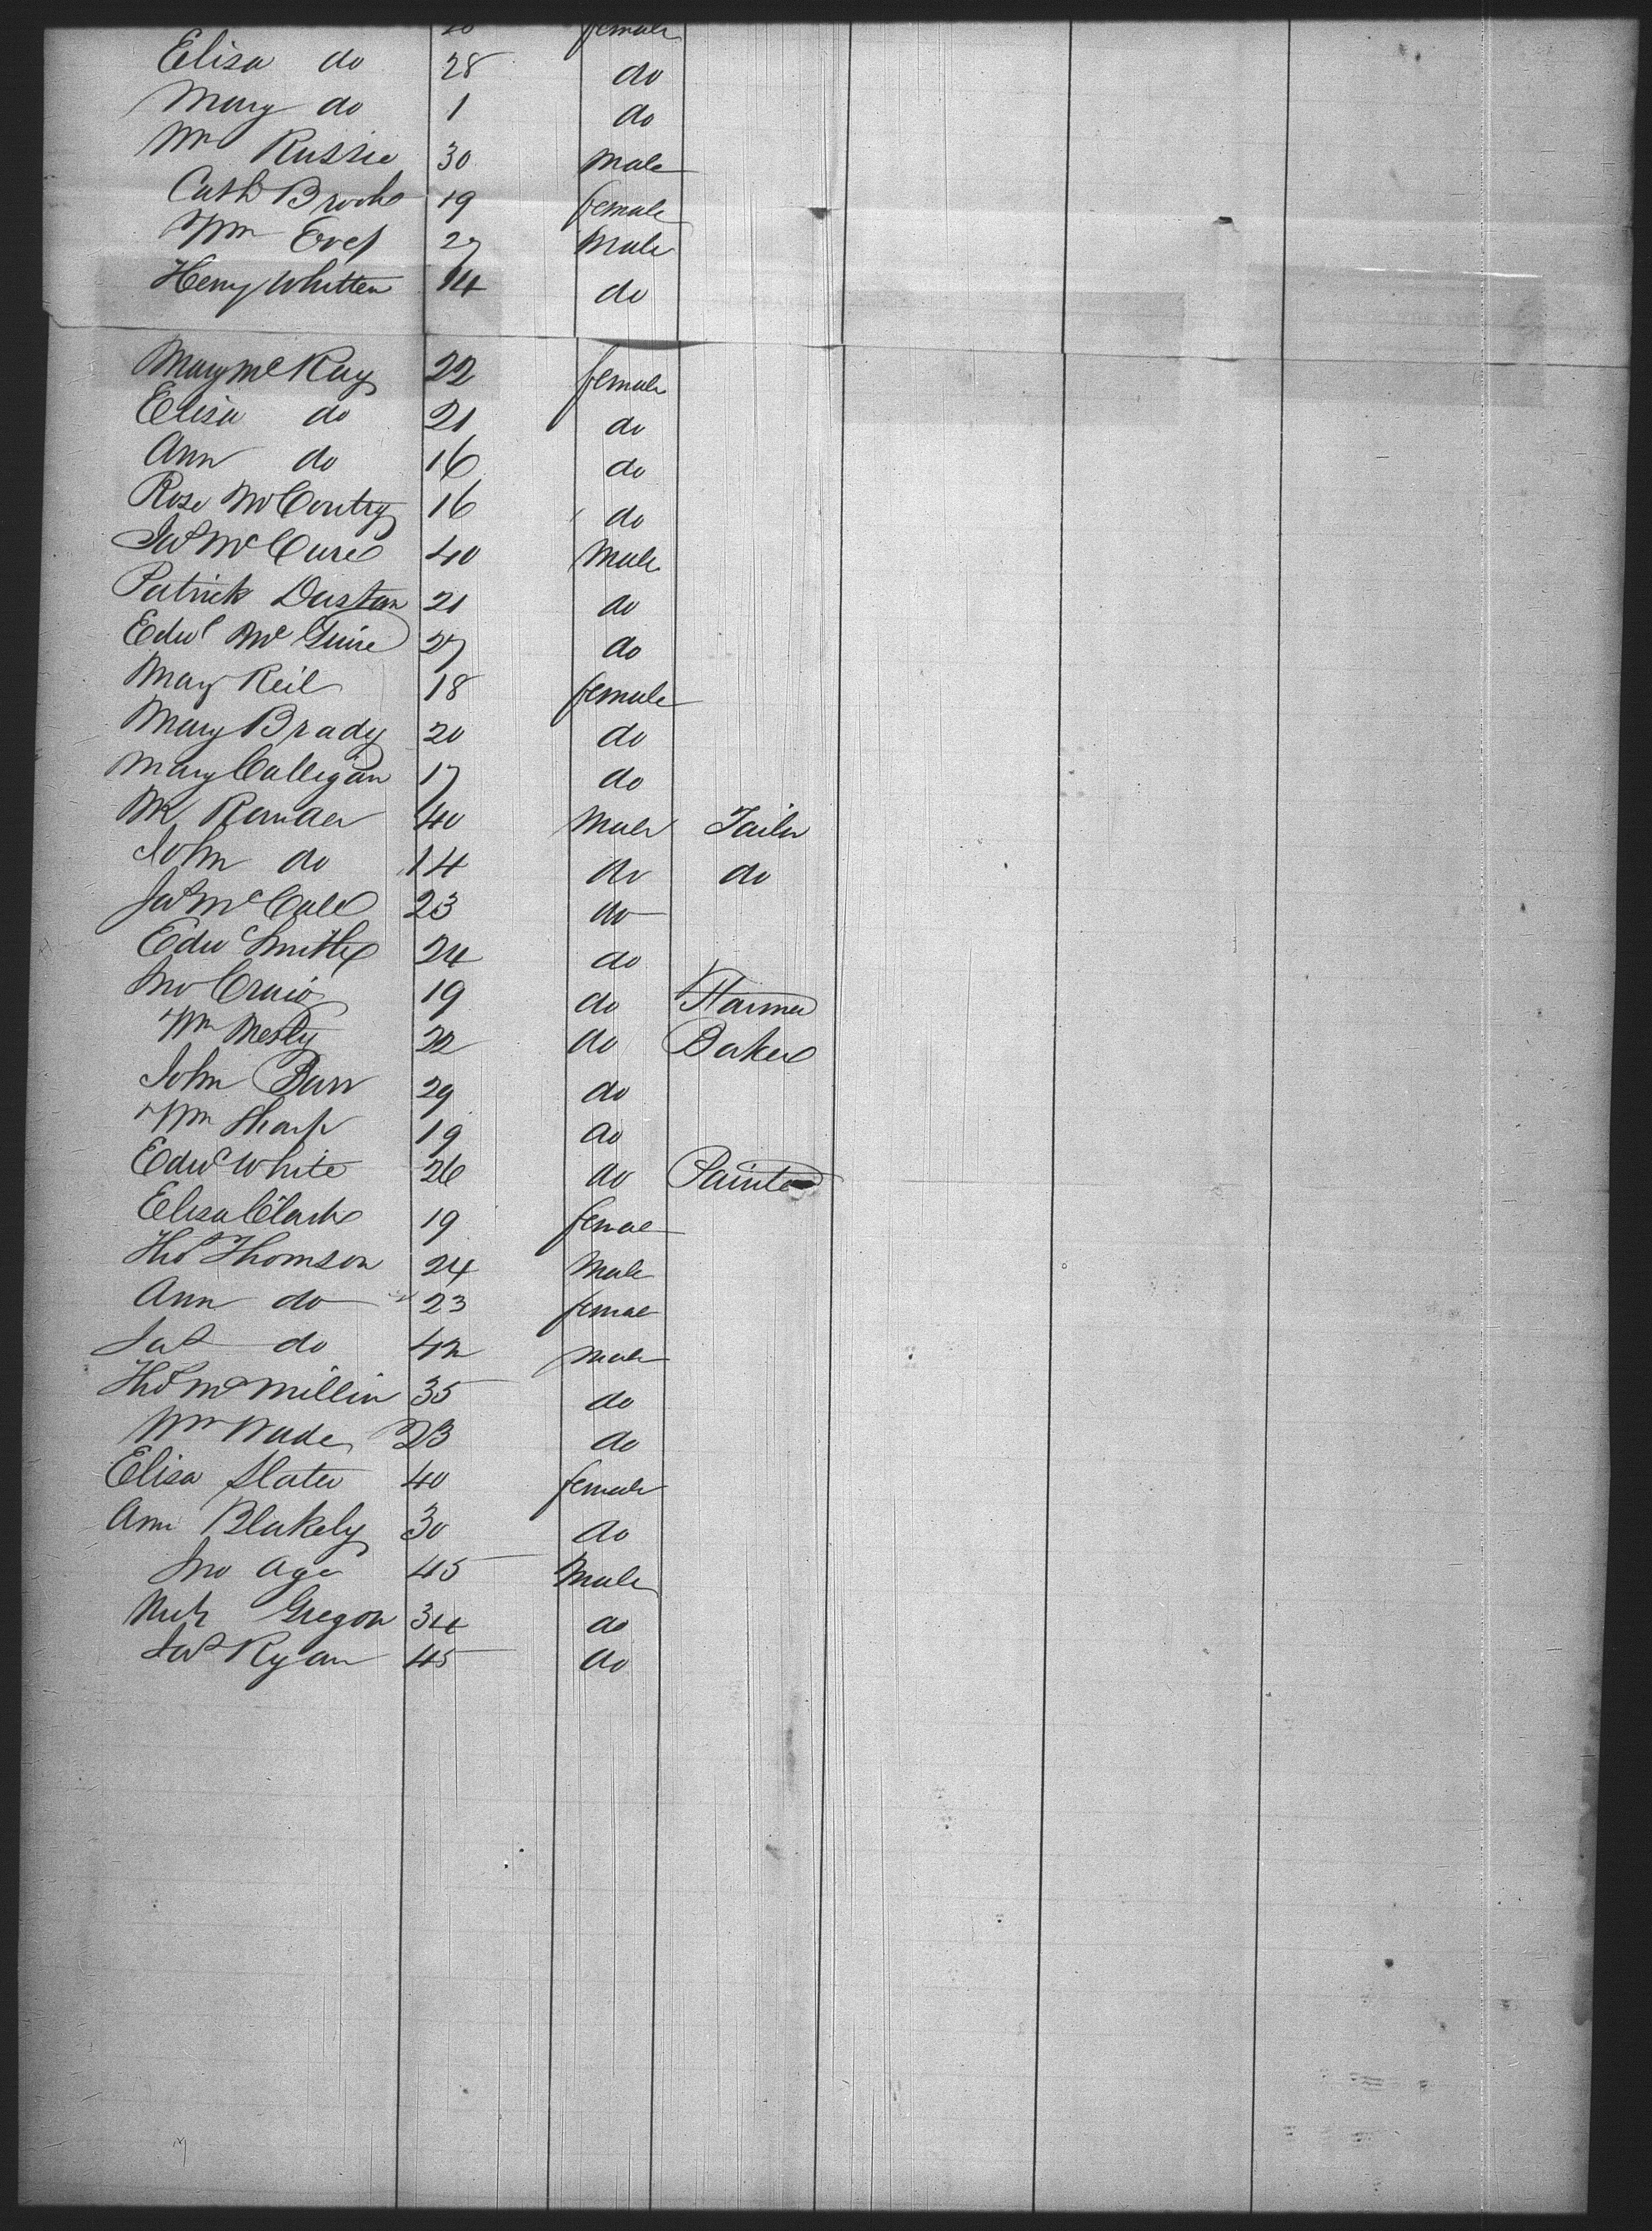 female
Elisa do 28 do
Mary do 1 do
Wm Russie 30 Male
Cath Brooks 19 female
Wm 27 Male
Henry Whitten 14 do
Mary McKay 22 female
Elisa do 21 do
Ann do 16 do
Rose 16 do
Jas 40 Male
Patrick Dustan 21 do
Edwd McGuire 27 do
Mary Reil 18 female
Mary Brady 20 do
Mary Calligan 17 do
40 Male Tailor
John do 14 do do
Jas McCall 23 do
Edwd Smith 24 do
Jno Craig 19 do Farmer
Wm Mesty 22 do Baker
John Barr 29 do
Wm Sharp 19 do
Edwd White 26 do Painter
Elisa Clark 19 femae
Thos Thomson 24 Male
Ann do 23 femae
Jas do 42 male
Thos McMillin 35 do
Wm Wade 23 do
Elisa Slater 40 female
Ann Blakely 30 do
Jno Age 45 Male
Mich Gregon 34 do
Jas Ryan 45 do